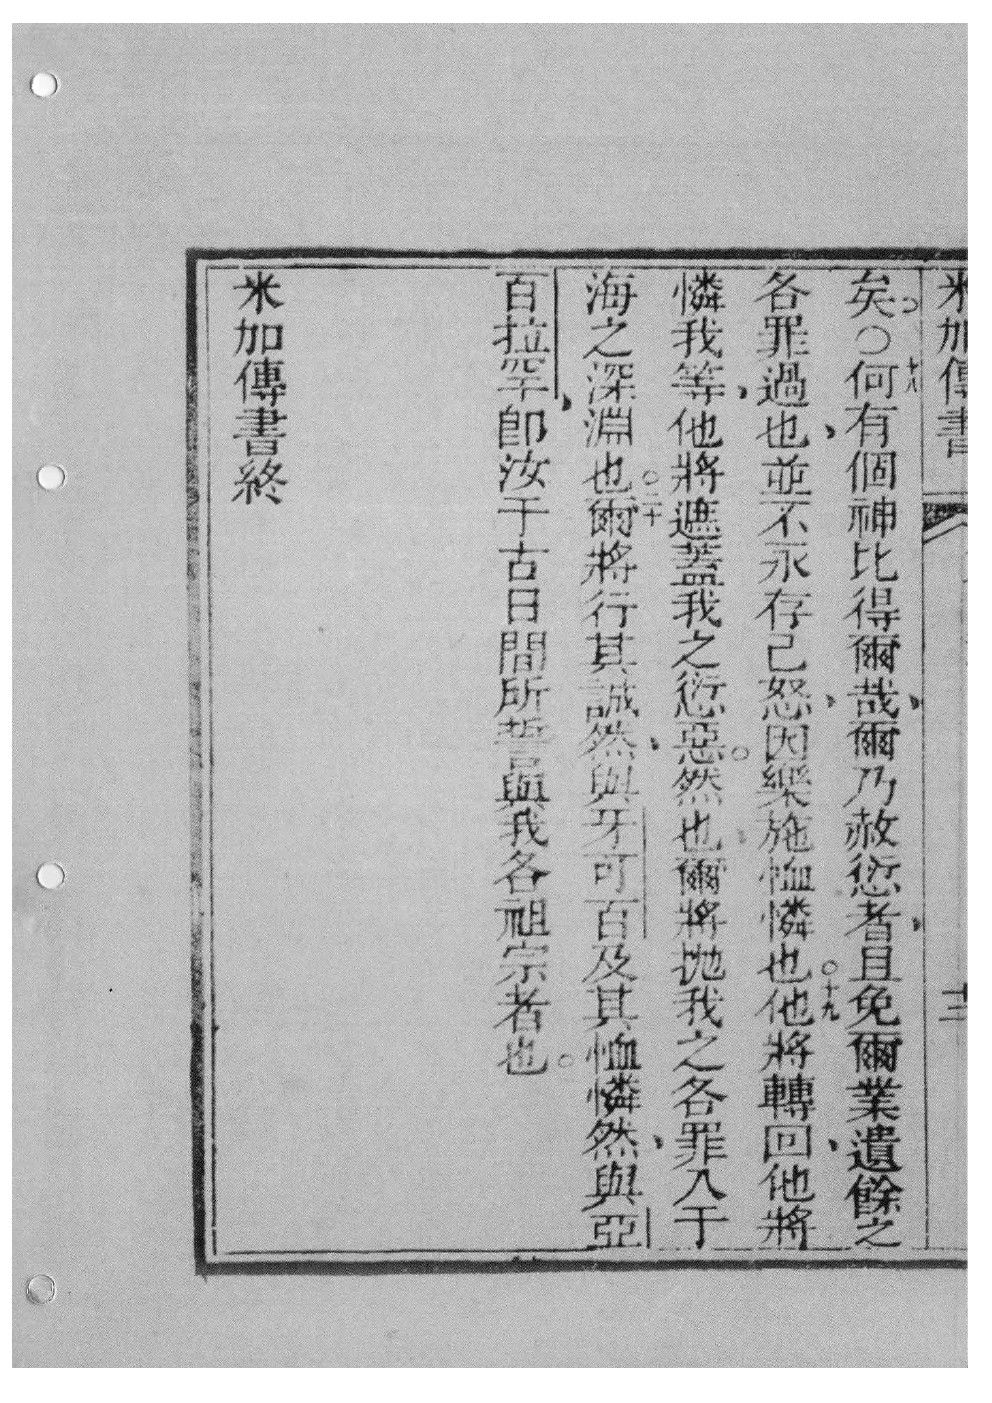 米加傳書
十二
矣。○十八何有個神比得爾哉、爾乃赦愆者、且免爾業遺餘之
各罪過也、並不永存己怒、因樂施恤憐也。十九他將轉回、他將
憐我等、他將遮蓋我之愆惡。然也、爾將拋我之各罪入于
海之深淵也。二十爾將行其誠然、與牙可百及其恤憐然、與亞
百拉罕、即汝于古日間所誓與我各祖宗者也。
米加傳書終